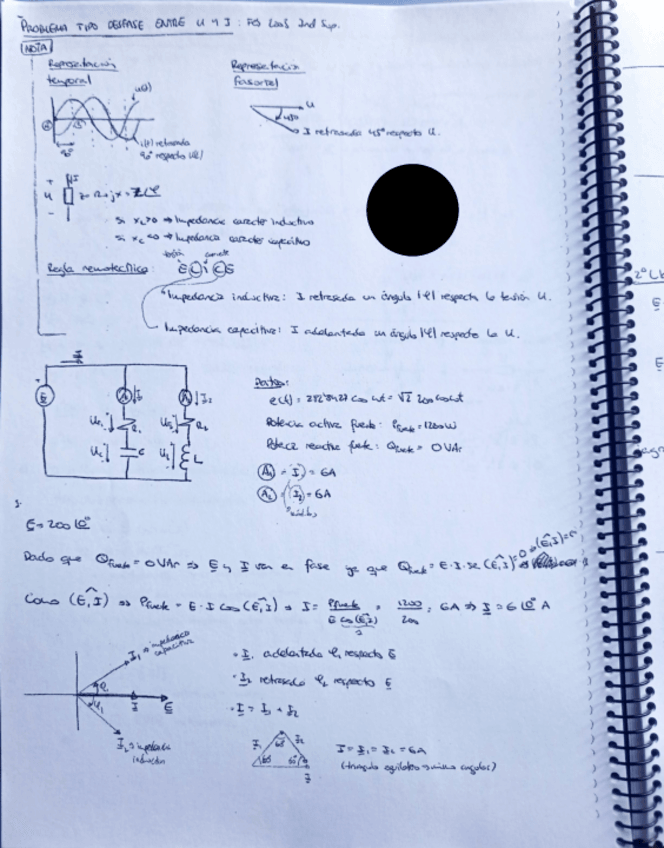 PROBLEMA TIPO DESFASE ENTRE U Y I:
NOTA
Representación temporal
Representación fasorial
u(t)
i(t) retrasada
90° respecto u(t)
90°
U
45°
I retrasada 45° respecto U.
+
U
-
I
Z = R + jX = Z∠φ
Si X>0 ⇒ Impedancia carácter inductivo
Si X<0 ⇒ Impedancia carácter capacitivo
tensión corriente
Regla nemotécnica: E L I C E
Impedancia inductiva: I retrasada un ángulo |φ| respecto la tensión U.
Impedancia capacitiva: I adelantada un ángulo |φ| respecto la U.
I
E
A I1
A I2
R1
R2
C
L
Datos:
e(t) = 282'8427 cos ωt = √2 200 cos ωt
Potencia activa fuente: Pfuente = 1200 W
Potencia reactiva fuente: Qfuente = 0 VAr
A1 = |I1| = 6A
A2 = |I2| = 6A
E = 200∠0°
Dado que Qfuente = 0 VAr ⇒ E y I van en fase ya que Qfuente = E·I·sen(E,I)
Como (E,I) ⇒ Pfuente = E·I cos(E,I) ⇒ I = Pfuente / E cos(E,I) = 1200/200 = 6A ⇒ I = 6∠0° A
I1 ⇒ impedancia
capacitiva
I
E
I2 ⇒ impedancia
inductiva
· I1 adelantada φ1 respecto E
· I2 retrasada φ2 respecto E
· I = I1 + I2
I1
I2
60°
60°
I
I = I1 = I2 = 6A
(triángulo equilátero ⇒ mismos ángulos)